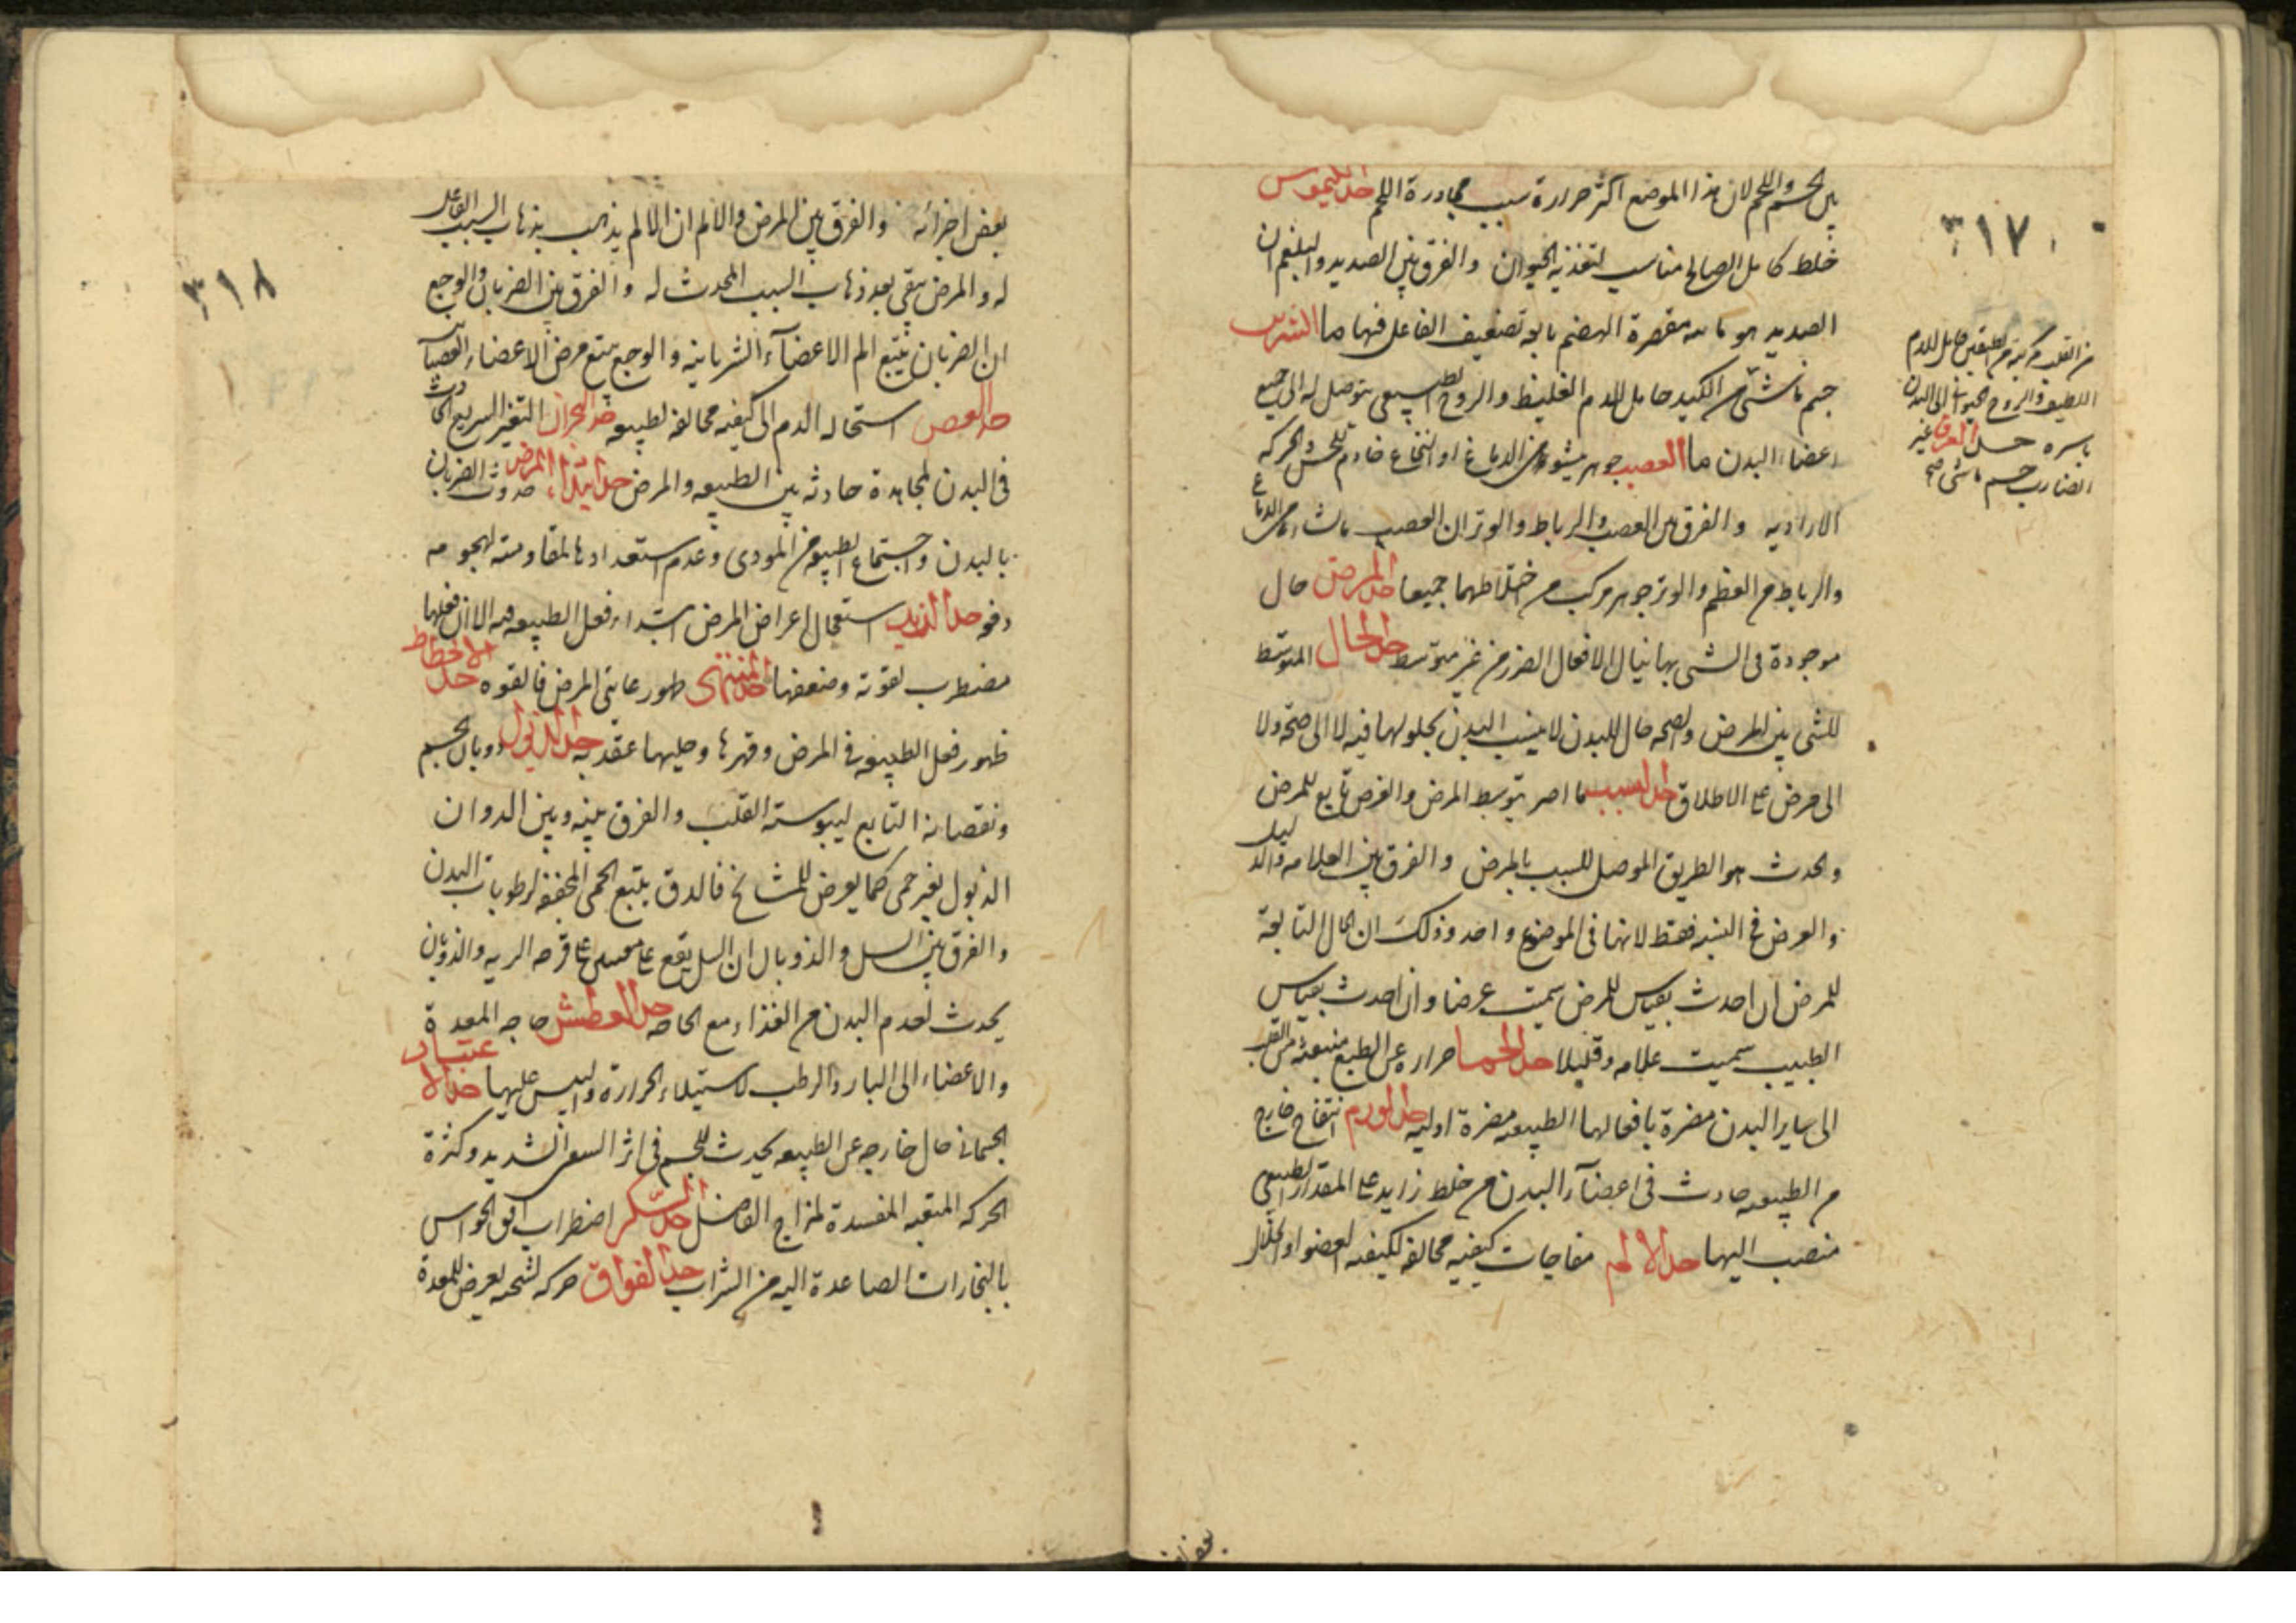 ٣١٧
بين الجسم واللحم لان هذا الموضع اكثر حرارة بسبب مجاورة اللحم حد الكيموس
خلط كامل الصالح مناسب لتغذية الحيوان والفرق بين الصديد والبلغم ان
الصديد هو مقصرة الهضم تضعيف الفاعل فيها ما الشريان
جسم ناشئ من الكبد حامل للدم الغليظ والروح الطبيعى يتوصل له الى جميع
اعضاء البدن ما العصب جوهر من الدماغ او النخاع خادم للحس والحركه
الاراديه والفرق بين العصب والرباط والوتر ان العصب من الدماغ
والرباط من العظم والوتر جوهر مركب من اختلاطهما جميعا حد المرض حال
موجودة فى الشى بها ينال الافعال الضرر من غير متوسط حد الحال المتوسط
للشى بين المرض والصحه حال للبدن لا ينسب البدن بحلولها فيه لا الى صحة ولا
الى مرض على الاطلاق حد السبب ما اضر بتوسط المرض والعرض تابع للمرض
والحدث هو الطريق الموصل للسبب بالمرض والفرق بين العلامه والدليل
والعرض فى النسبه فقط لانها فى الموضوع واحد وذلك ان الحال التابعة
للمرض ان احدث بقياس للمرض سميت عرضا وان احدث بقياس
الطبيب سميت علامه ودليلا حد الحما حراره عن الطبع منبعثة من القلب
الى ساير البدن مضرة بافعالها الطبيعيه مضرة اوليه حد الورم انتفاخ خارج
من الطبيعه حادث فى اعضآء البدن من خلط زايد على المقدار الطبيعى
منصب اليها حد الالم مفاجات كيفيه مخالفه لكيفيه العضو او انحلال
من القلب مركبة من طبقتين حامل للدم
اللطيف والروح الحيوانى الى البدن
باسره حد العرق غير
الضارب جسم ناشئ صح
بعض
٣١٨
بعض اجزائه والفرق بين المرض والالم ان الالم يذهب بذهاب السبب الفاعل
له والمرض يبقى بعد ذهاب السبب المحدث له والفرق بين الضربان والوجع
ان الضربان يتبع الم الاعضآء الشريانيه والوجع يتبع مرض الاعضاء العصبانية
حد العفص استحاله الدم الى كيفيه مخالفه لطبيعه حد البحران التغير السريع الحادث
فى البدن لمجاهدة حادثه بين الطبيعه والمرض حد ابتداء المرض حدوث الضربان
بالبدن واجتماع الطبيعه من الموذى وعدم استعدادها لمقاومته لهجومه
دفعه حد التزيد استعجال اعراض المرض ابتداء فعل الطبيعه فيه الا ان فعلها
مضطرب لقوته وضعفها حد المنتهى ظهور المرض فالقوه حد الانحطاط
ظهور فعل الطبيعه فى المرض وقهرها حد الذبول ذوبان الجسم
ونقصانه التابع ليبوسة القلب والفرق بينه وبين الدوان
الذبول بغير حمى كما يعرض للمشايخ فالدق يتبع الحمى المجففه لرطوبات البدن
والفرق بين السل والذوبال ان السل يقع على قرحه الريه والذوبان
يحدث لعدم البدن من الغذاء مع الحاجه حد العطش حاجه المعدة
والاعضاء الى البارد والرطب لاستيلاء الحرارة واليبس عليها حد الاعياء
الجسمانى حال خارجه عن الطبيعه يحدث للجسم فى اثر السفر الشديد وكثرة
الحركه المتعبه المفسدة لمزاج الفاضل حد السكر اضطراب افق الحواس
بالبخارات الصاعدة اليه من الشراب حد الفواق حركه تشنجيه يعرض للمعدة